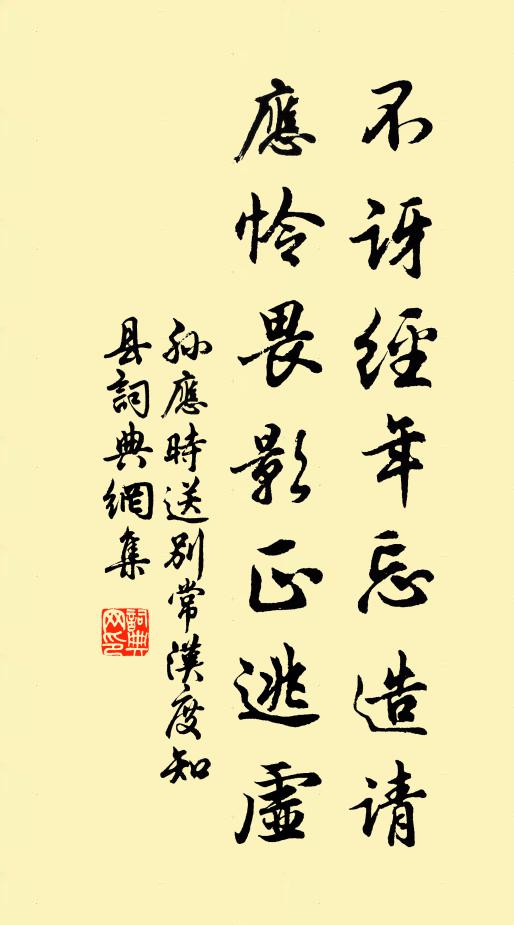 不讶經年忘造请
應怜畏影正逃虛
孙應時送别常漢度知
县詞典網集
詞典网印